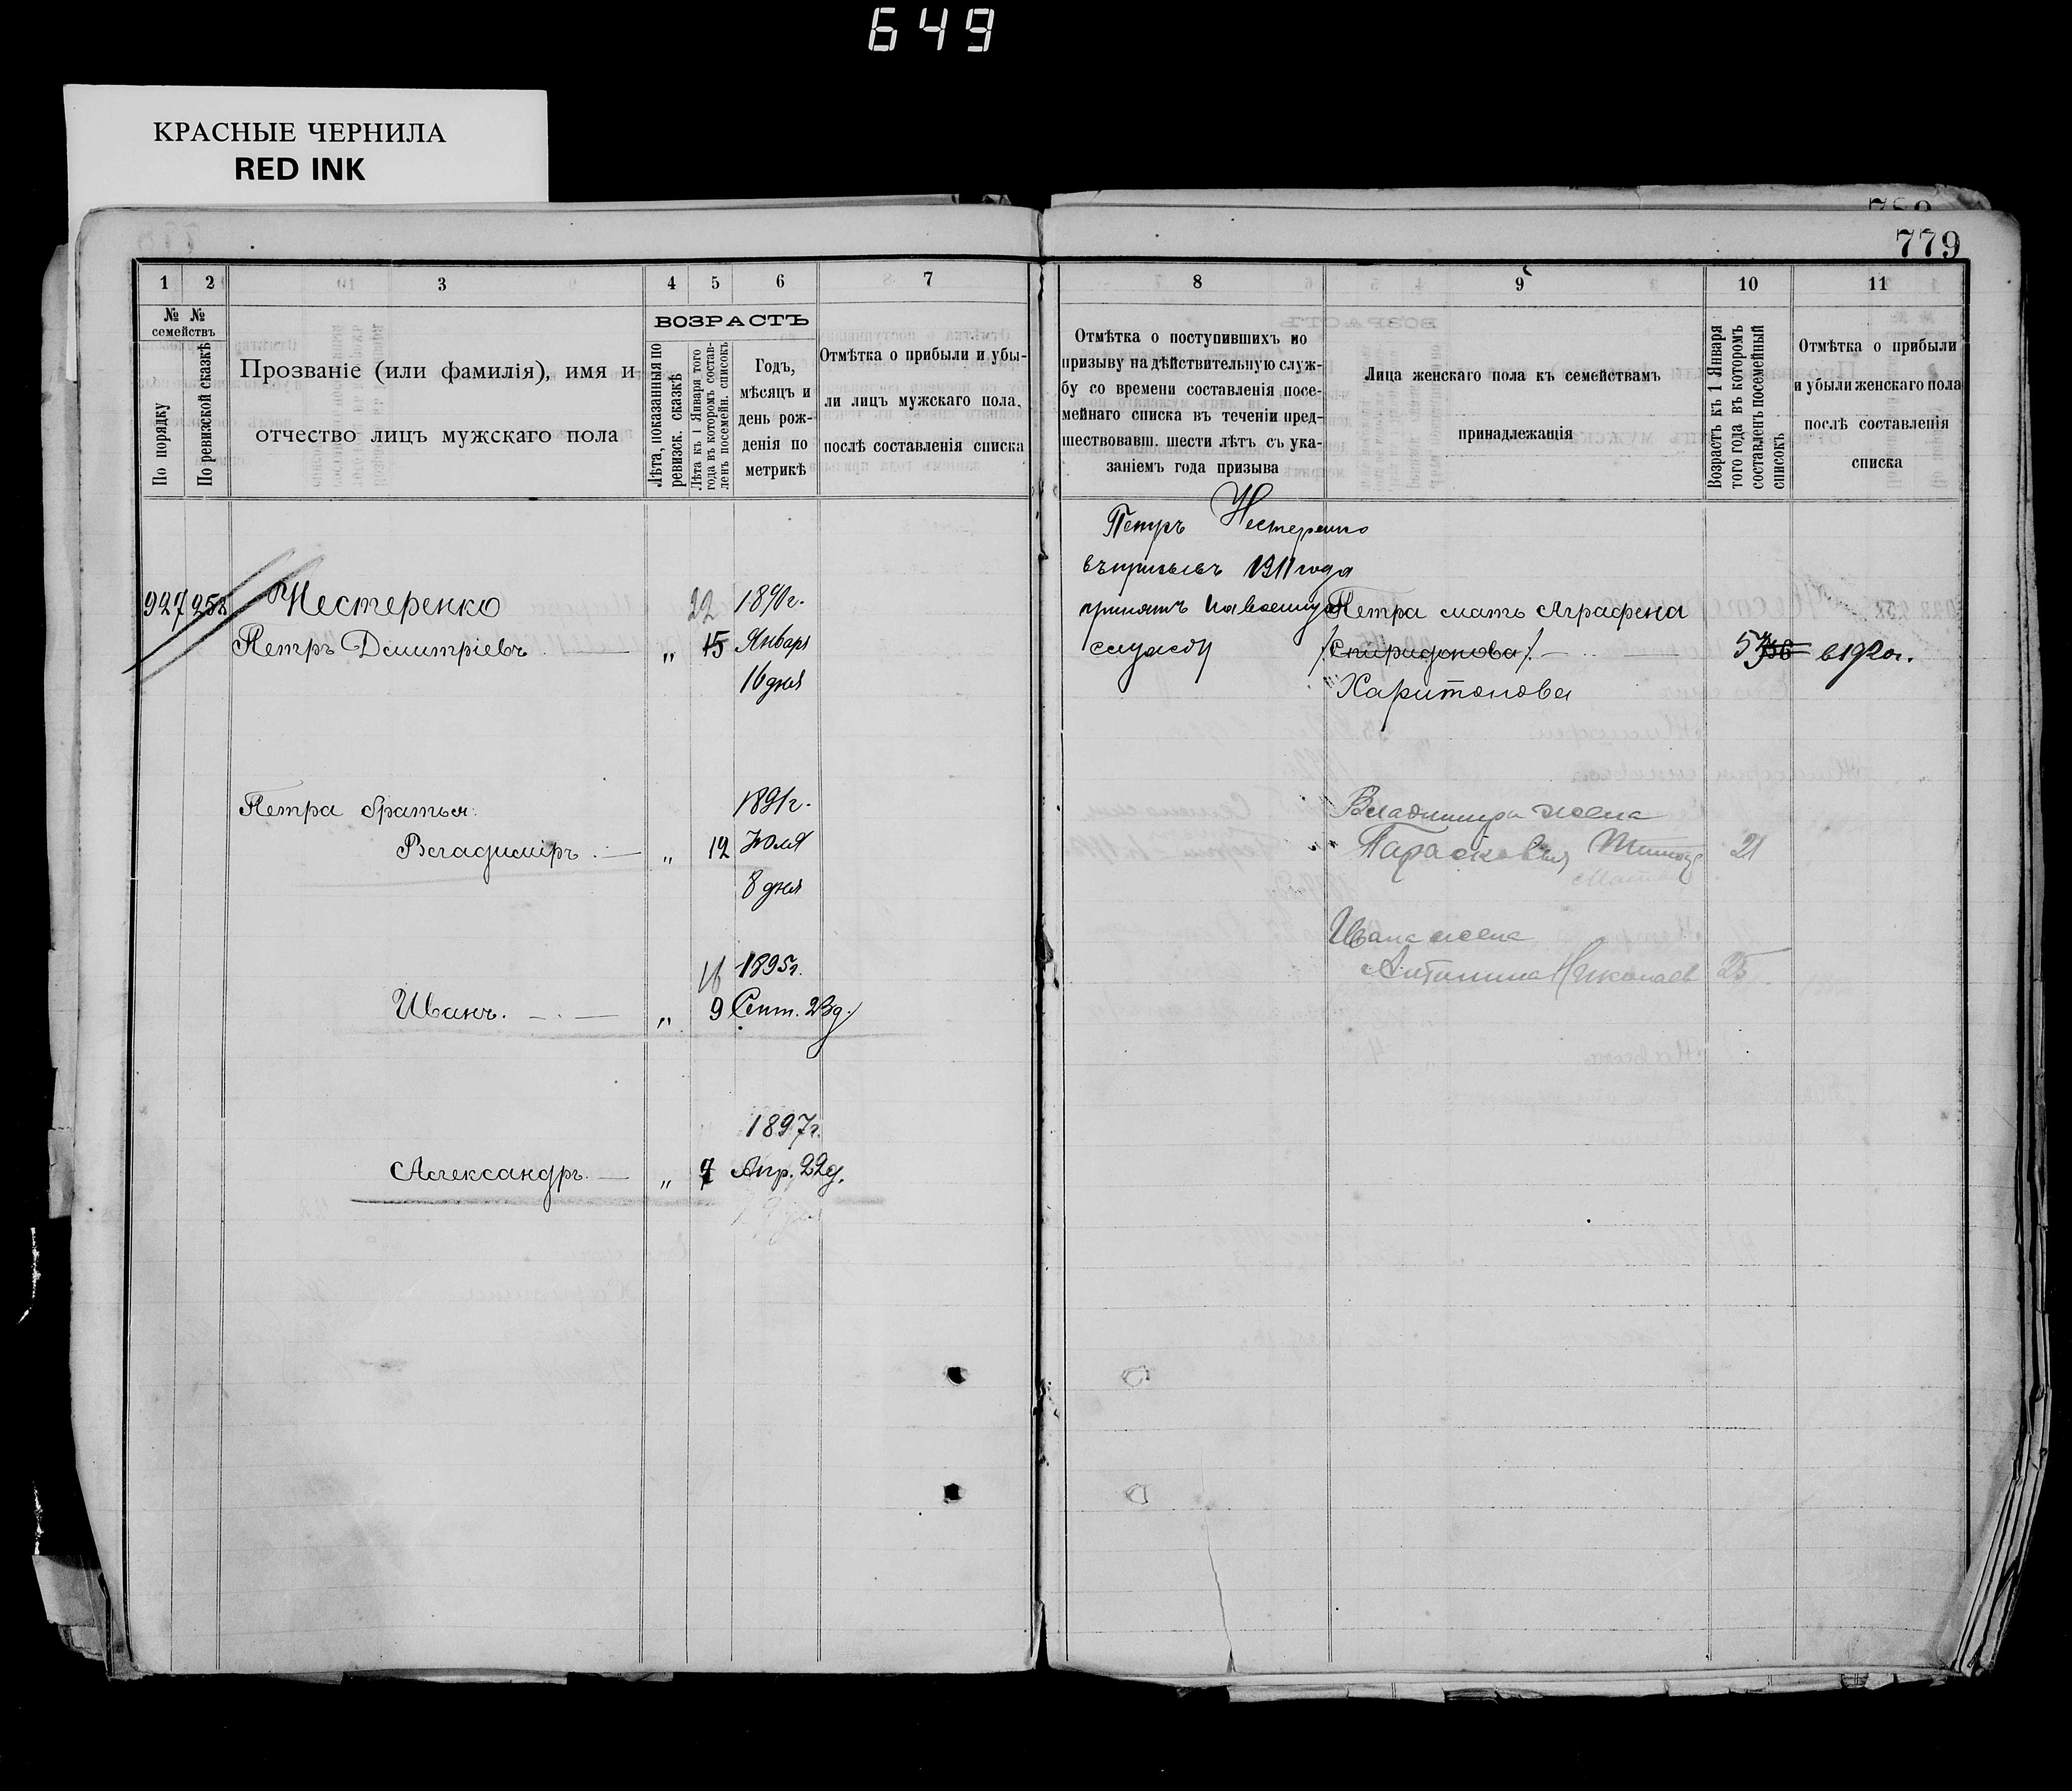 649
КРАСНЫЕ ЧЕРНИЛА
RED INK
779
1 2 3 4 5 6 7
№ № семействъ
По порядку
По ревизской сказкѣ
Прозваніе (или фамилія), имя и
отчество лицъ мужскаго пола
ВОЗРАСТЪ
Лѣта, показанныя по
ревизск. сказкѣ
Лѣта къ 1 Января того
года въ которомъ состав-
ленъ посемейн. списокъ
Годъ,
мѣсяцъ и
день рож-
денія по
метрикѣ
Отмѣтка о прибыли и убы-
ли лицъ мужскаго пола,
послѣ составленія списка
8 9 10 11
Отмѣтка о поступившихъ по
призыву на дѣйствительную служ-
бу со времени составленія посе-
мейнаго списка въ теченіи пред-
шествовавш. шести лѣтъ съ ука-
заніемъ года призыва
Лица женскаго пола къ семействамъ
принадлежащія
Возрастъ къ 1 Января
того года въ которомъ
составленъ посемейный
списокъ
Отмѣтка о прибыли
и убыли женскаго пола
послѣ составленія
списка
927 258 Нестеренко 22 1890г.
Петръ Дмитріевъ „ 15 Январь
16 дня
Петра братья: 1891г.
Владиміръ „ 12 Юля
8 дня
16 1895г.
Иванъ. „ 9 Сент. 23д.
1897г.
Александръ „ 7 Апр. 22д.
Петръ Нестеренко
въ призывъ 1911 года
принятъ на военную
службу
Петра мать Аграфена
/Спиридонова/
Харитонова
в 1920г.
Владимира жена
Параскевья 21
Ивана жена
Антонина Николаев 25